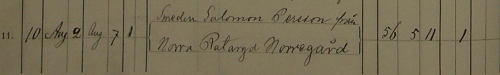 Sweden Salomon Persson från
11. 10 Aug 2 Aug 7 1 56 5 11 1
Norra Ratargd Norregård